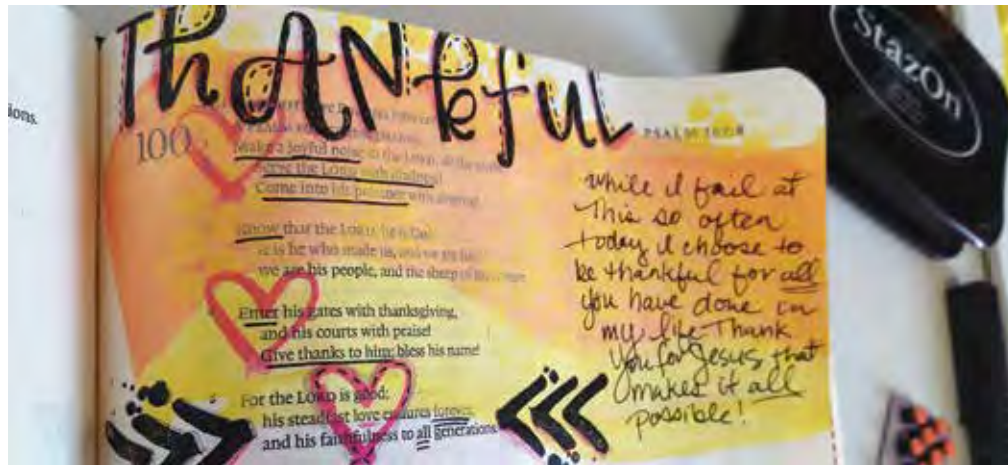 ions.
ThANkfUL
100
PSALM
Make a joyful noise to the LORD, all the
Serve the LORD with gladness!
Come into his presence with singing!
Know that the LORD, he is God!
It is he who made us, and we are his;
we are his people, and the sheep of his
Enter his gates with thanksgiving,
and his courts with praise!
Give thanks to him; bless his name!
For the LORD is good;
his steadfast love endures forever,
and his faithfulness to all generations.
PSALM
while I fail at
this so often
today I choose to
be thankful for all
you have done in
my life Thank
you for Jesus that
makes it all
possible!
StazOn